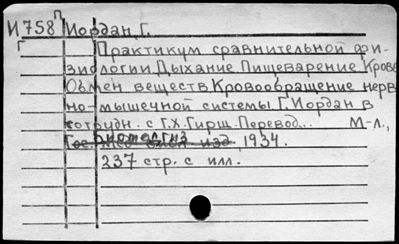 И758 Иордан, Г.
П
Г
Практикум сравнительной фи-
зиологии Дыхание Пищеварение Крово
Обмен веществ Кровообращение нерв
но-мышечной системы Г. Иордан в
сотрудн. с Г.Х. Гирш. Перевод... М-л.,
Биомедгиз
Гос. мед. изд. 1934.
237 стр. с илл.